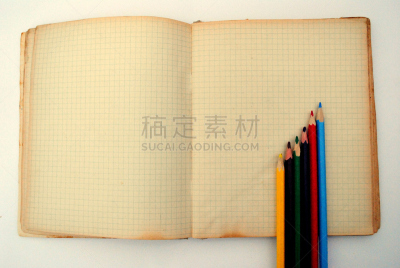 搞定素材
SUCAI.GAODING.COM